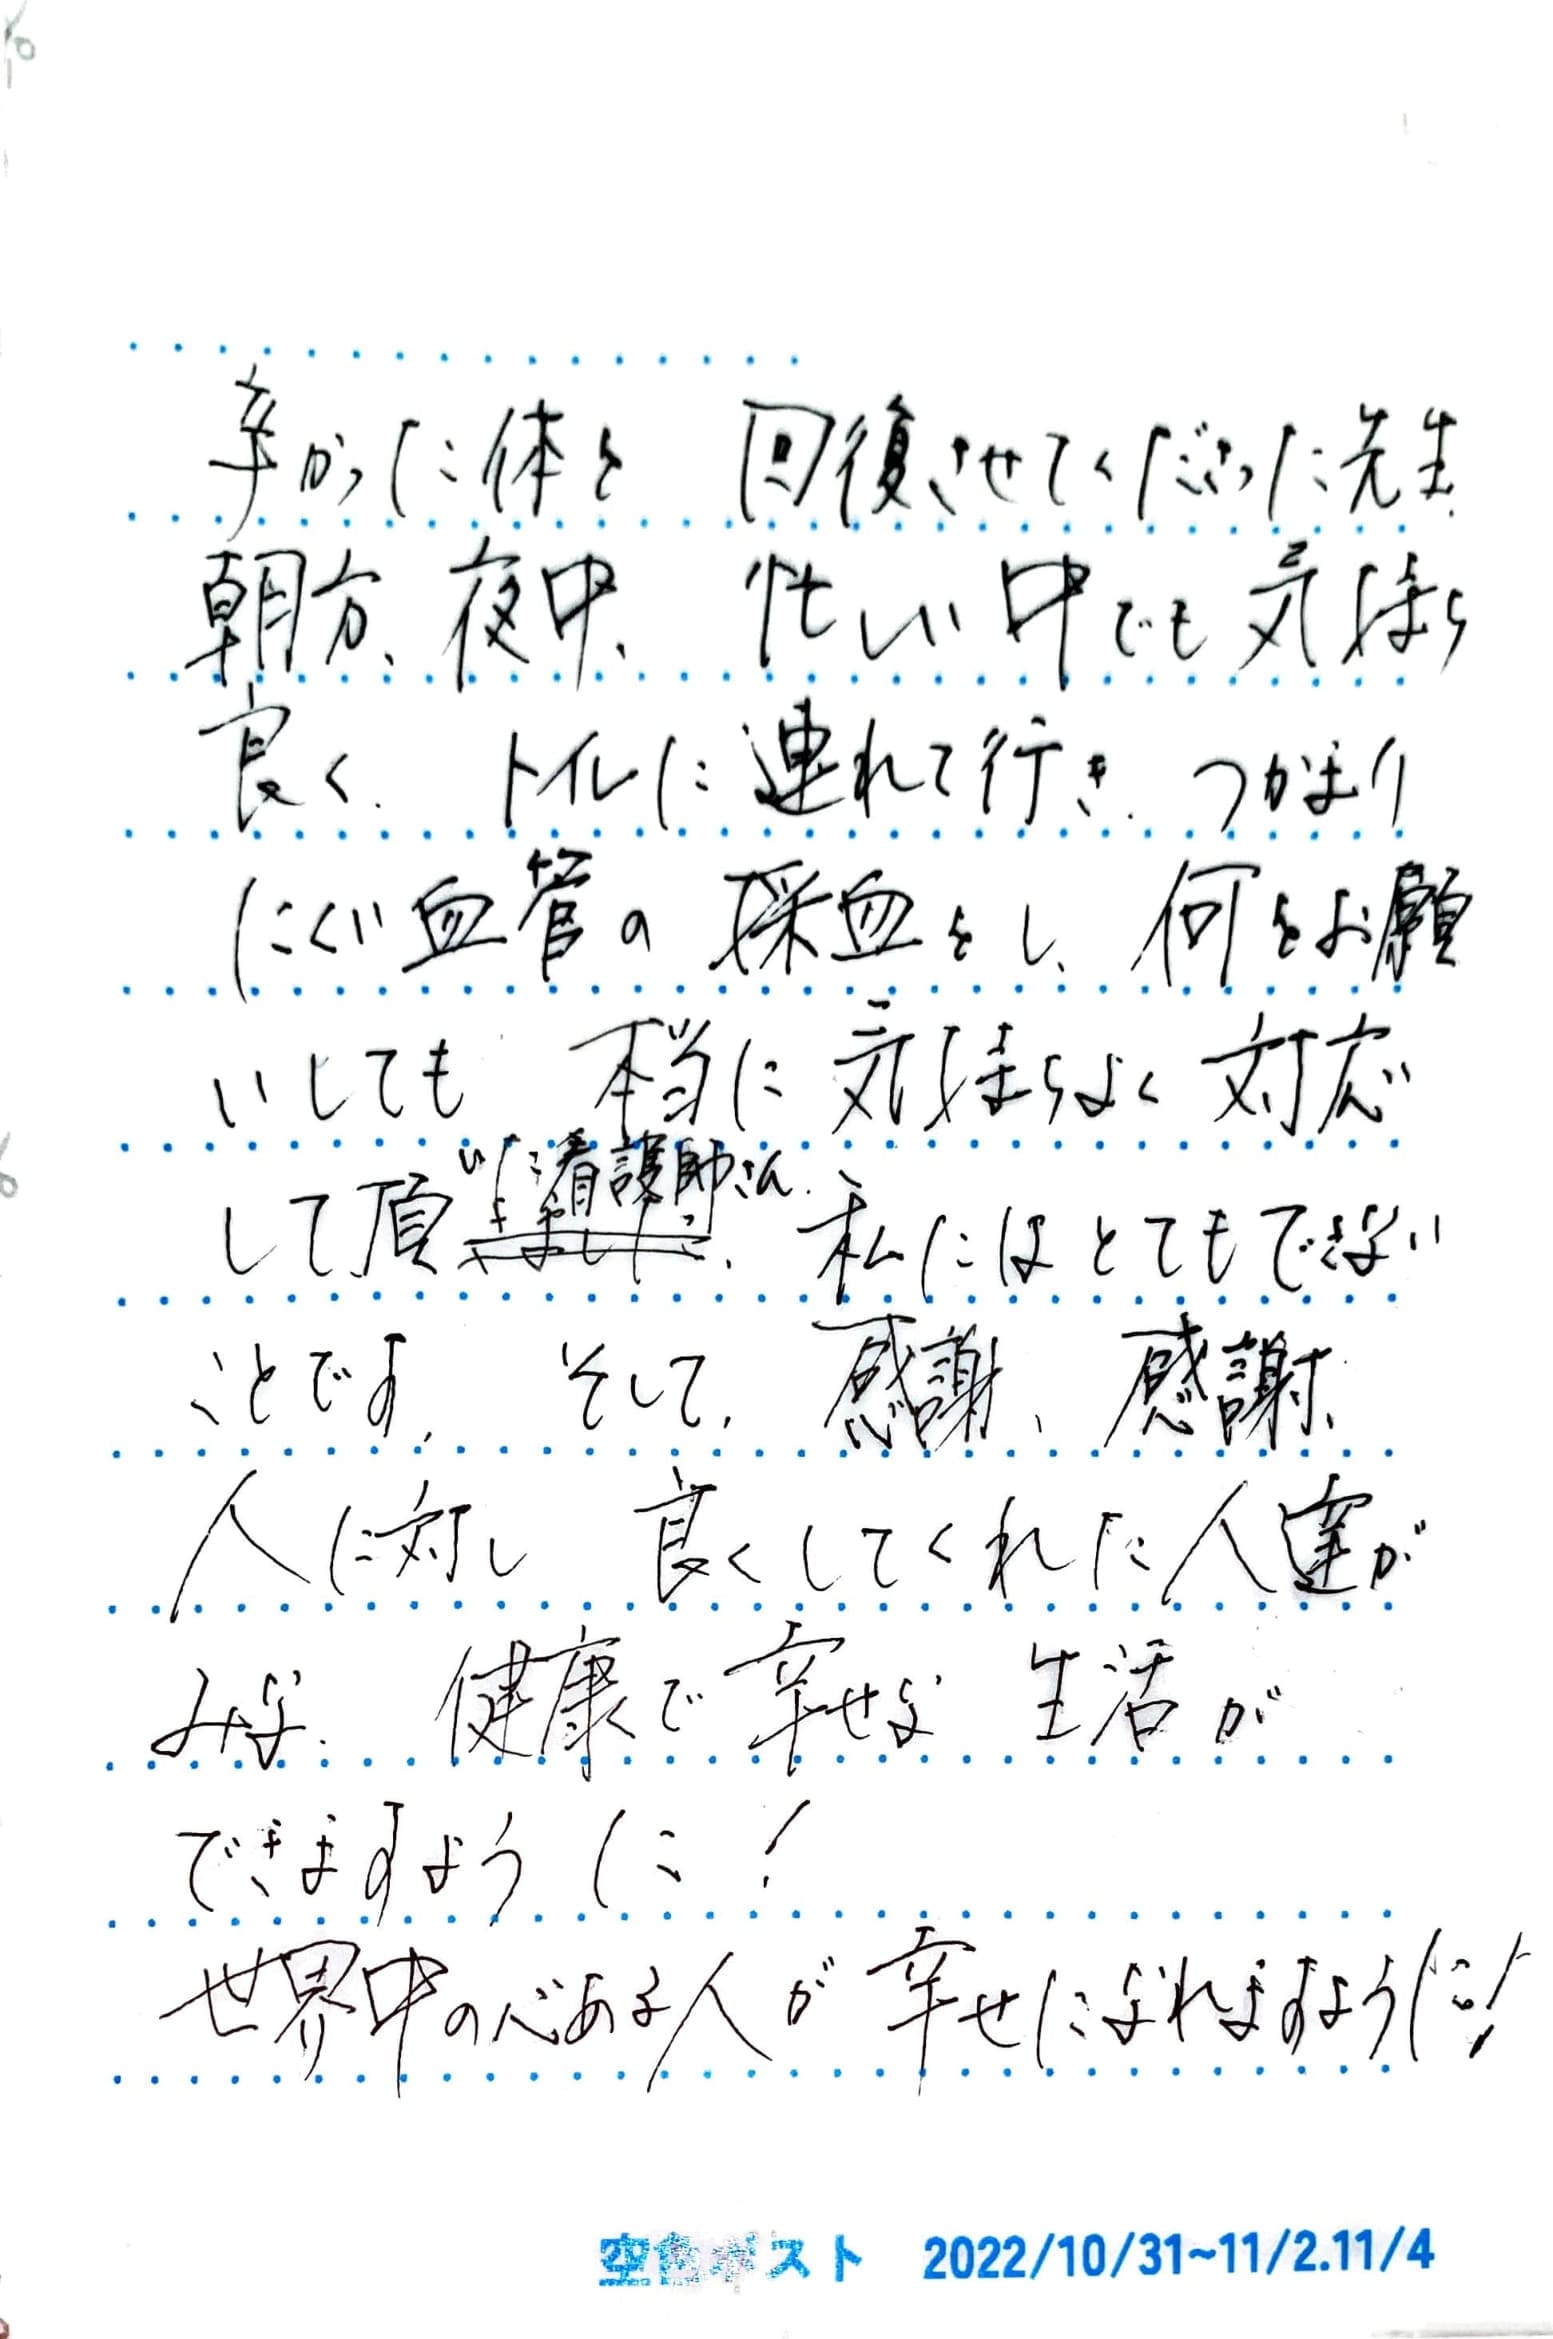 辛かった体を 回復させてくださった先生、
朝方、夜中、 忙しい中でも気持ち
良く、 トイレに連れて行き、つかまり
にくい血管の 採血をし、何をお願
いしても 本当に気持ちよく対応
して頂いた看護師さん、私にはとてもできない
ことです。 そして、感謝、感謝、
人に対し 良くしてくれた人達が
みな、 健康で幸せな 生活が
できますように!
世界中の心ある人が幸せになれますように!
空色ポスト 2022/10/31~11/2.11/4